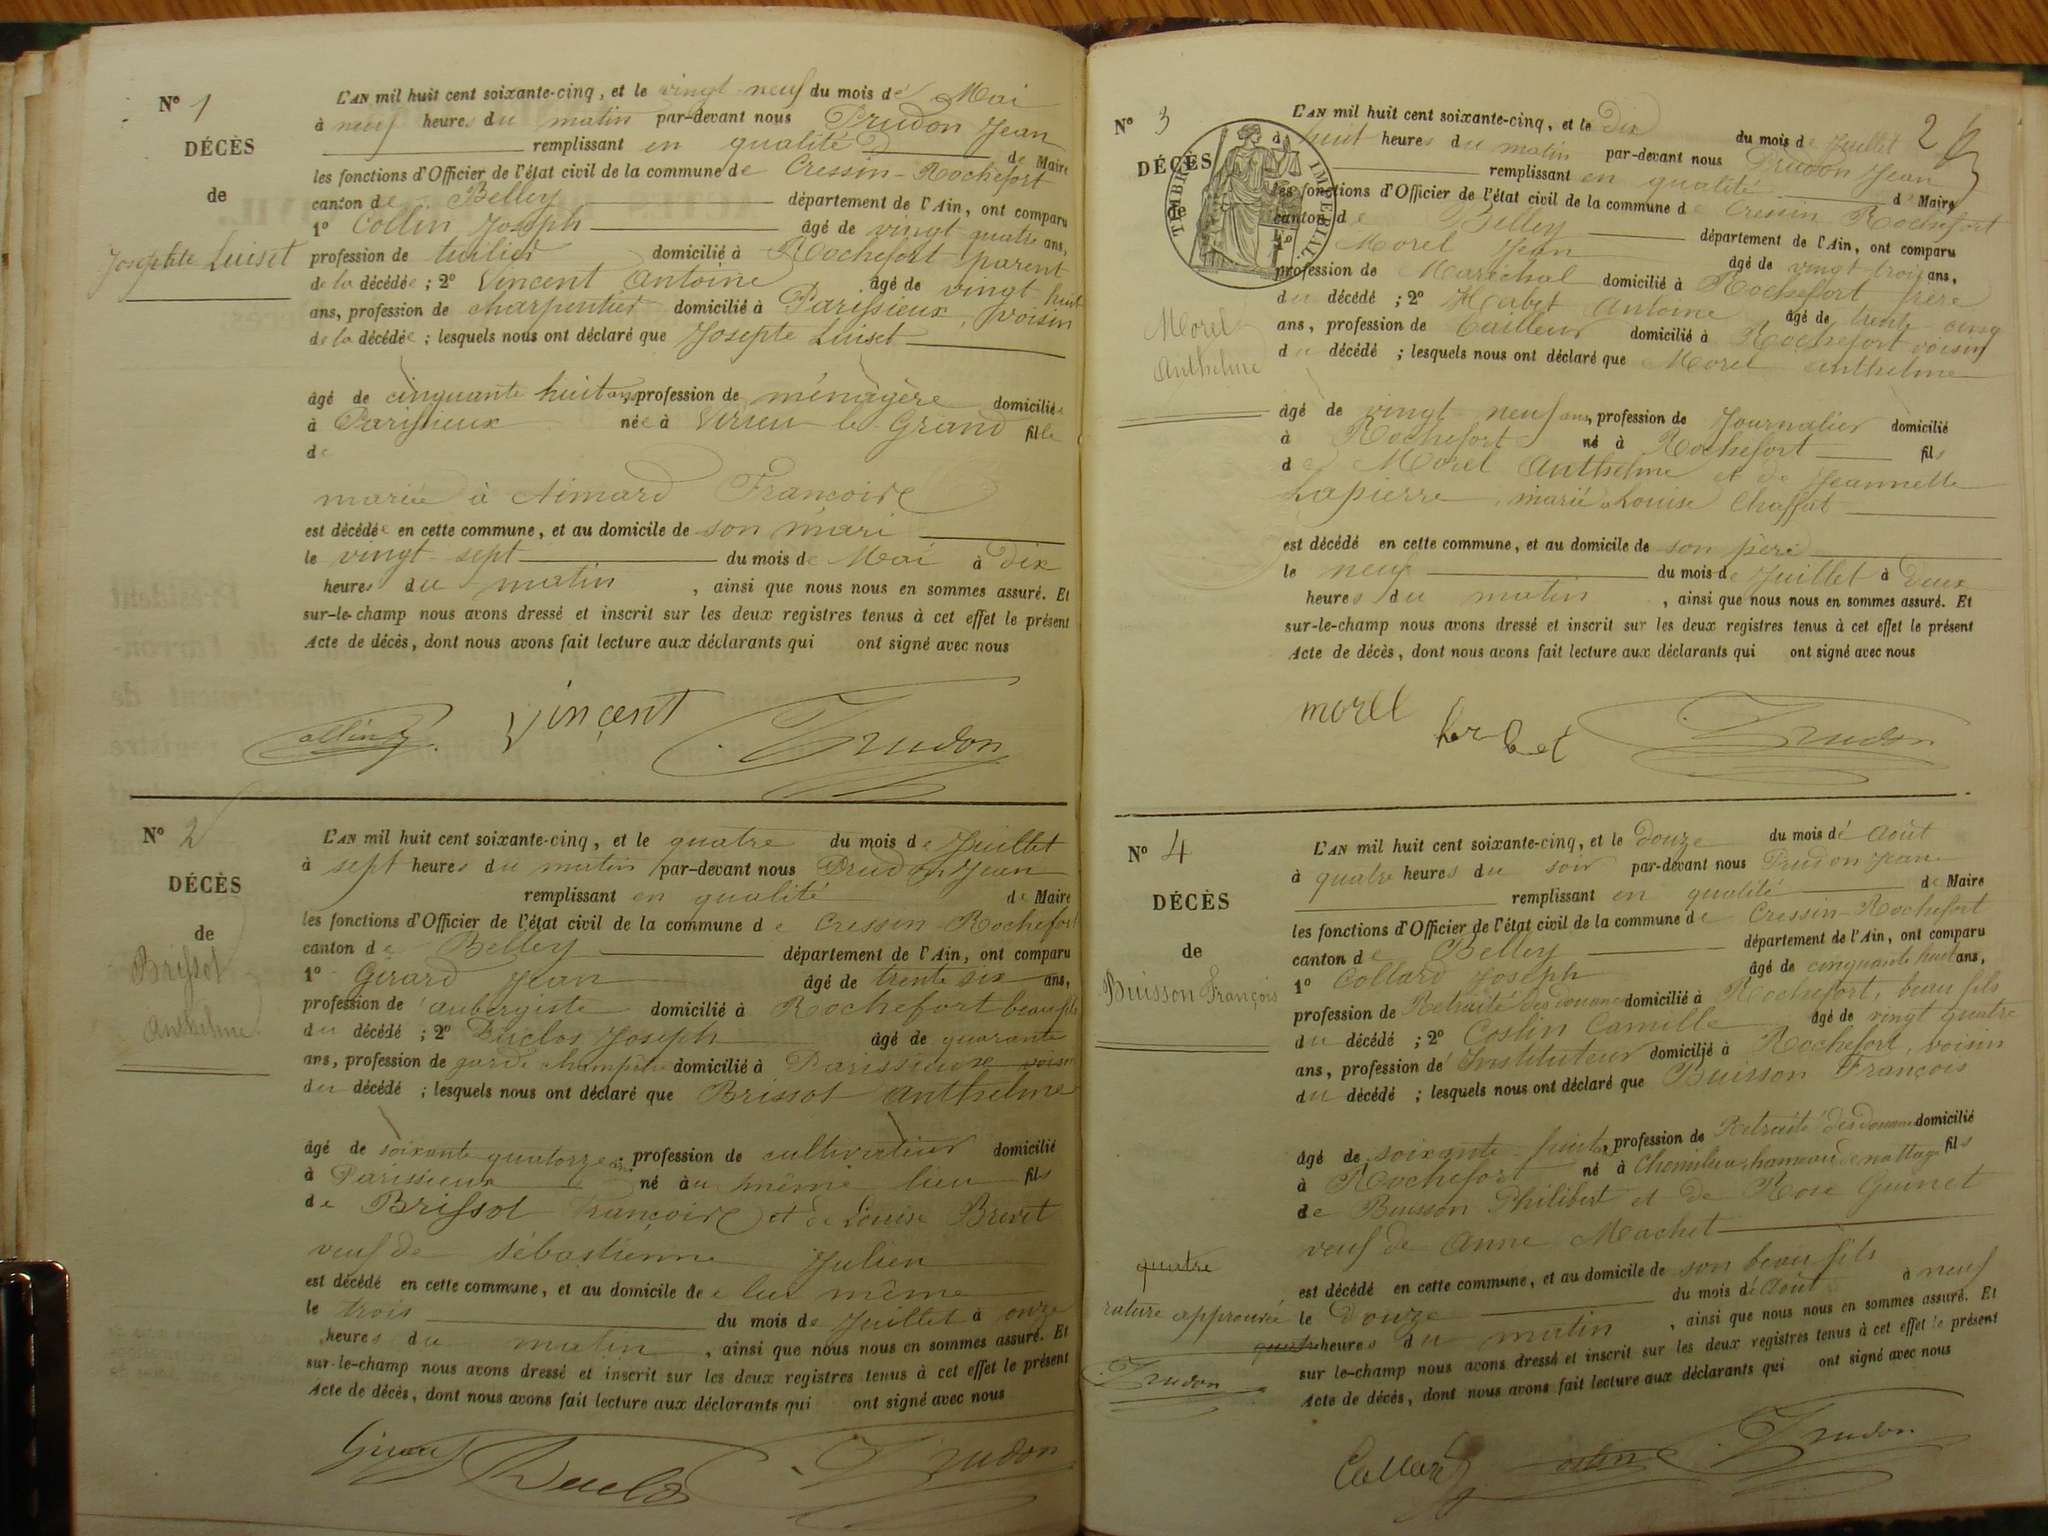 N° 1
DÉCÈS
de
Josephte Luiset
L'AN mil huit cent soixante-cinq, et le vingt-neuf du mois de Mai
à neuf heures du matin par-devant nous Prudon Jean
remplissant en qualité de Maire
les fonctions d'Officier de l'état civil de la commune de Cressin-Rochefort
canton de Belley département de l'Ain, ont comparu
1° Collin Joseph âgé de vingt quatre ans,
profession de tuilier domicilié à Rochefort parent
de la décédée ; 2° Vincent Antoine âgé de vingt huit
ans, profession de charpentier domicilié à Parissieux, voisin
de la décédée ; lesquels nous ont déclaré que Josepte Luiset
âgé de cinquante huit ans, profession de ménagère domiciliée
à Parissieux née à Virieu le Grand fille
de
mariée à Aimard Francoise
est décédée en cette commune, et au domicile de son mari
le vingt-sept du mois de Mai à dix
heures du matin, ainsi que nous nous en sommes assuré. Et
sur-le-champ nous avons dressé et inscrit sur les deux registres tenus à cet effet le présent
Acte de décès, dont nous avons fait lecture aux déclarants qui ont signé avec nous
Collin Vincent Prudon
N° 2
DÉCÈS
de
Brissot
Anthelme
L'AN mil huit cent soixante-cinq, et le quatre du mois de Juillet
à sept heures du matin par-devant nous Prudon Jean
remplissant en qualité de Maire
les fonctions d'Officier de l'état civil de la commune de Cressin-Rochefort
canton de Belley département de l'Ain, ont comparu
1° Girard Jean âgé de trente six ans,
profession de aubergiste domicilié à Rochefort beau fils
du décédé ; 2° Duclos Joseph âgé de quarante
ans, profession de garde champêtre domicilié à Parissieux voisin
du décédé ; lesquels nous ont déclaré que Brissot Anthelme
âgé de soixante quatorze ans, profession de cultivateur domicilié
à Parissieux né au même lieu fils
de Brissot Françoise et de Louise Brevet
veuf de Sébastienne Julien
est décédé en cette commune, et au domicile de lui même
le trois du mois de Juillet à onze
heures du matin, ainsi que nous nous en sommes assuré. Et
sur-le-champ nous avons dressé et inscrit sur les deux registres tenus à cet effet le présent
Acte de décès, dont nous avons fait lecture aux déclarants qui ont signé avec nous
Girard Duclos Prudon
N° 3
DÉCÈS
de
Morel
Anthelme
TIMBRE IMPERIAL.
2
L'AN mil huit cent soixante-cinq, et le Dix du mois de Juillet
à huit heures du matin par-devant nous Prudon Jean
remplissant en qualité de Maire
les fonctions d'Officier de l'état civil de la commune de Cressin Rochefort
canton de Belley département de l'Ain, ont comparu
1° Morel Jean âgé de vingt trois ans,
profession de Maréchal domicilié à Rochefort frère
du décédé ; 2° Herbet Antoine âgé de trente cinq
ans, profession de tailleur domicilié à Rochefort voisin
du décédé ; lesquels nous ont déclaré que Morel Anthelme
âgé de vingt-neuf ans, profession de Journalier domicilié
à Rochefort né à Rochefort fils
de Morel Anthelme et de Jeannette
Lapierre, marié à Louise Chaffat
est décédé en cette commune, et au domicile de son père
le neuf du mois de Juillet à Deux
heures du matin, ainsi que nous nous en sommes assuré. Et
sur-le-champ nous avons dressé et inscrit sur les deux registres tenus à cet effet le présent
Acte de décès, dont nous avons fait lecture aux déclarants qui ont signé avec nous
morel herbet Prudon
N° 4
DÉCÈS
de
Buisson François
L'AN mil huit cent soixante-cinq, et le Douze du mois de Août
à quatre heures du soir par-devant nous Prudon Jean
remplissant en qualité de Maire
les fonctions d'Officier de l'état civil de la commune de Cressin-Rochefort
canton de Belley département de l'Ain, ont comparu
1° Collard Joseph âgé de cinquante huit ans,
profession de Retraité des Douanes domicilié à Rochefort, beau fils
du décédé ; 2° Costin Camille âgé de vingt quatre
ans, profession d'Instituteur domicilié à Rochefort, voisin
du décédé ; lesquels nous ont déclaré que Buisson François
âgé de soixante-huit ans, profession de Retraité des Douanes domicilié
à Rochefort né à Chemilieu, hameau de nattage fils
de Buisson Philibert et de Rose Guinet
veuf de Anne Machet
est décédé en cette commune, et au domicile de son beau fils
le Douze du mois de Août à neuf
quatre heures du matin, ainsi que nous nous en sommes assuré. Et
sur le-champ nous avons dressé et inscrit sur les deux registres tenus à cet effet le présent
Acte de décès, dont nous avons fait lecture aux déclarants qui ont signé avec nous
quatre
rature approuvée
Prudon
Collard Costin Prudon